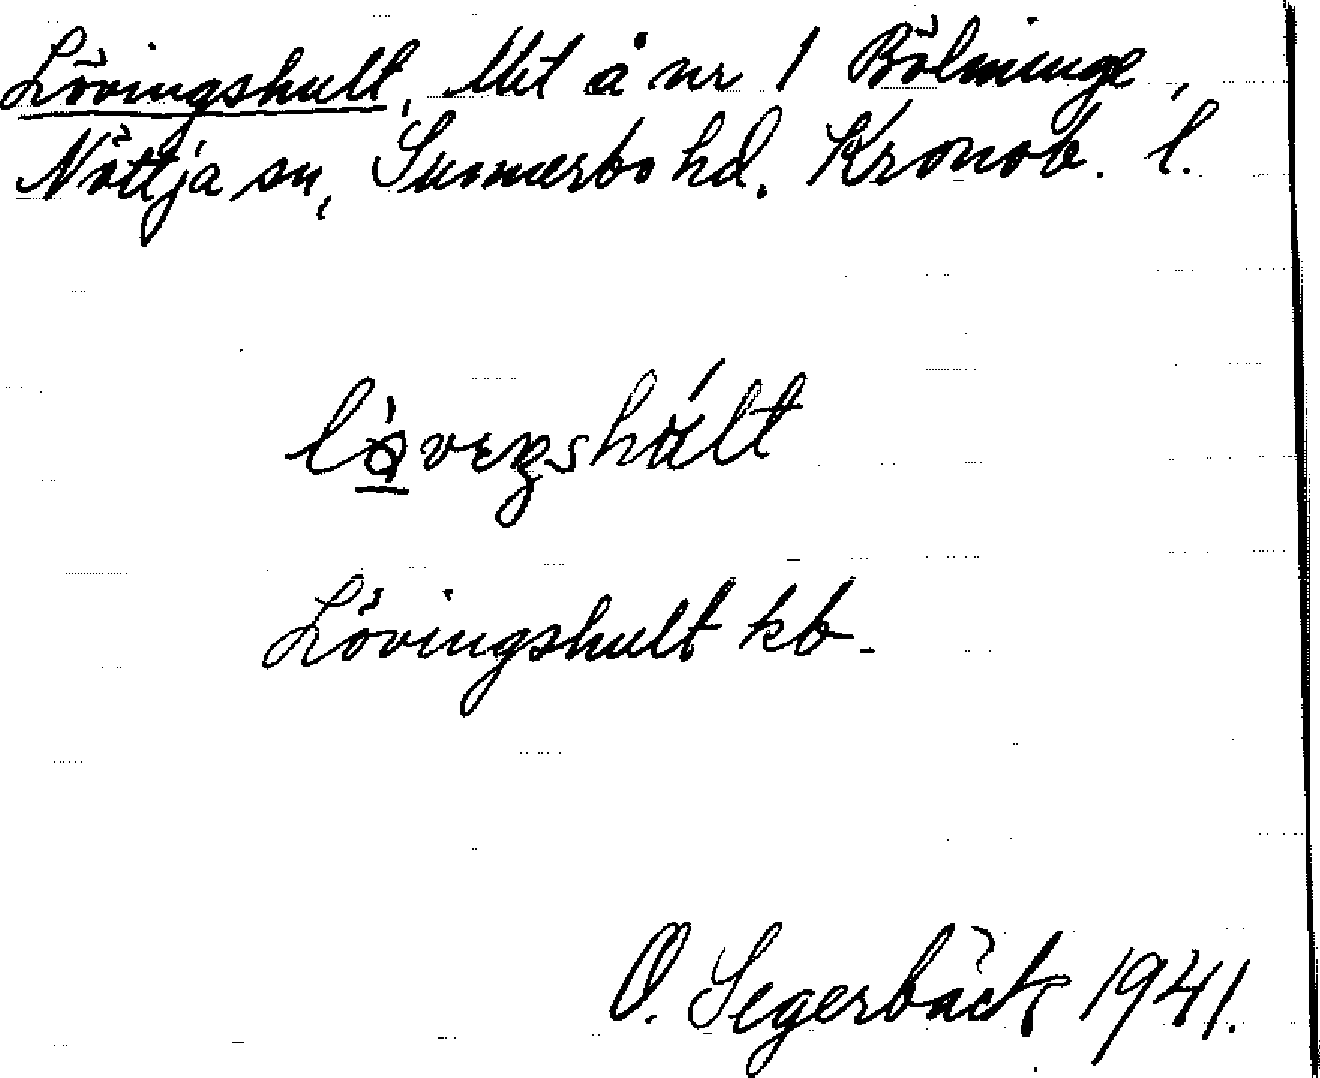 Lövingshult, Utt å nr 1 Bölminge,
Nöttja sn, Sunnerbo hd. Kronob. l.
Lövingshult kb.
O. Segerbäck 1941.